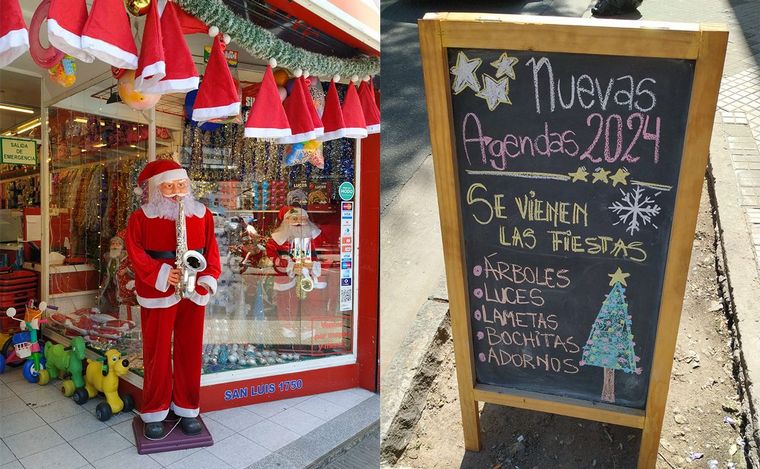 SALIDA
DE EMERGENCIA
SAN LUIS 1750
Nuevas
Argendas 2024
SE VIENEN
LAS FIESTAS
ÁRBOLES
LUCES
LAMETAS
BOCHITAS
ADORNOS